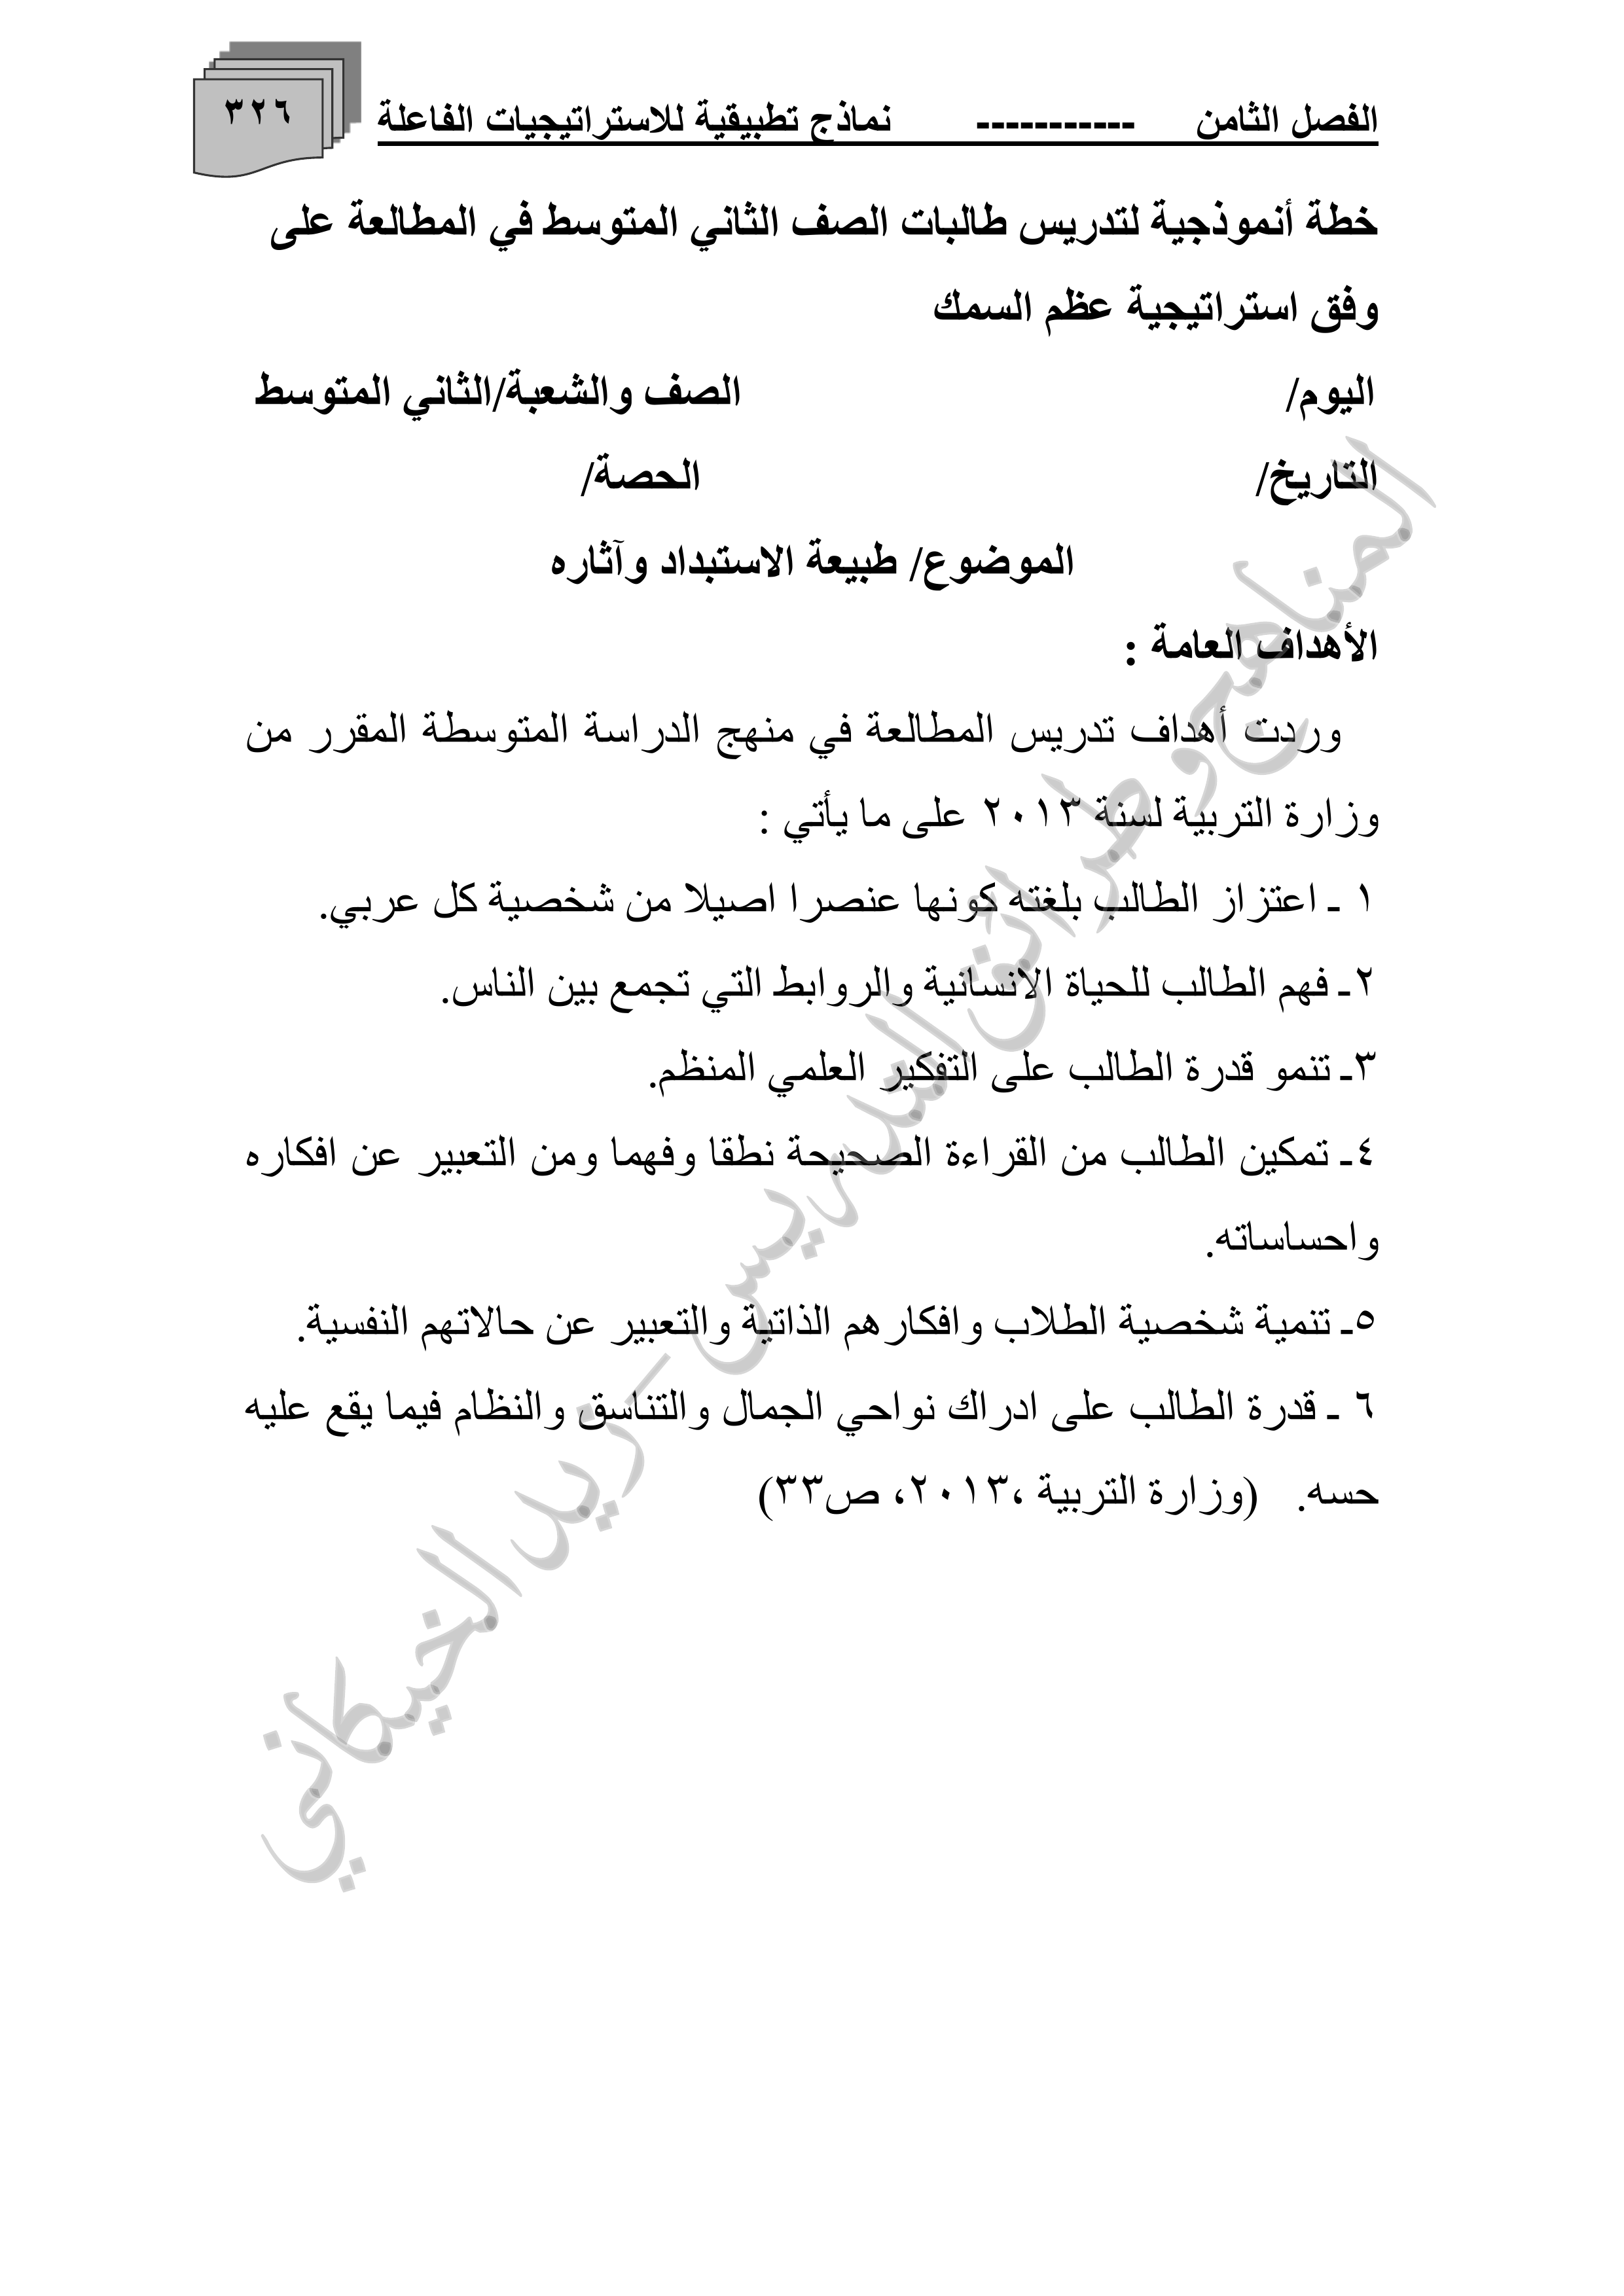 الفصل الثامن ----------- نماذج تطبيقية للاستراتيجيات الفاعلة
٣٢٦
خطة أنموذجية لتدريس طالبات الصف الثاني المتوسط في المطالعة على
وفق استراتيجية عظم السمك
اليوم/ الصف والشعبة/الثاني المتوسط
التاريخ/ الحصة/
الموضوع/ طبيعة الاستبداد وآثاره
الأهداف العامة :
وردت أهداف تدريس المطالعة في منهج الدراسة المتوسطة المقرر من
وزارة التربية لسنة ٢٠١٣ على ما يأتي :
١ ـ اعتزاز الطالب بلغته كونها عنصرا اصيلا من شخصية كل عربي.
٢ـ فهم الطالب للحياة الانسانية والروابط التي تجمع بين الناس.
٣ـ تنمو قدرة الطالب على التفكير العلمي المنظم.
٤ـ تمكين الطالب من القراءة الصحيحة نطقا وفهما ومن التعبير عن افكاره
واحساساته.
٥ـ تنمية شخصية الطلاب وافكارهم الذاتية والتعبير عن حالاتهم النفسية.
٦ ـ قدرة الطالب على ادراك نواحي الجمال والتناسق والنظام فيما يقع عليه
حسه. (وزارة التربية ،٢٠١٣، ص٣٣)
المناهج وطرائق التدريس – زيد الخيكاني